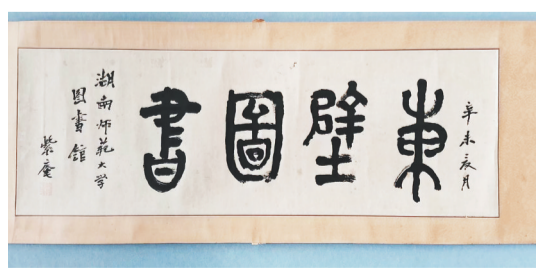 辛未亥月
東壁圖書
湖南师范大学
图书馆
紫庵